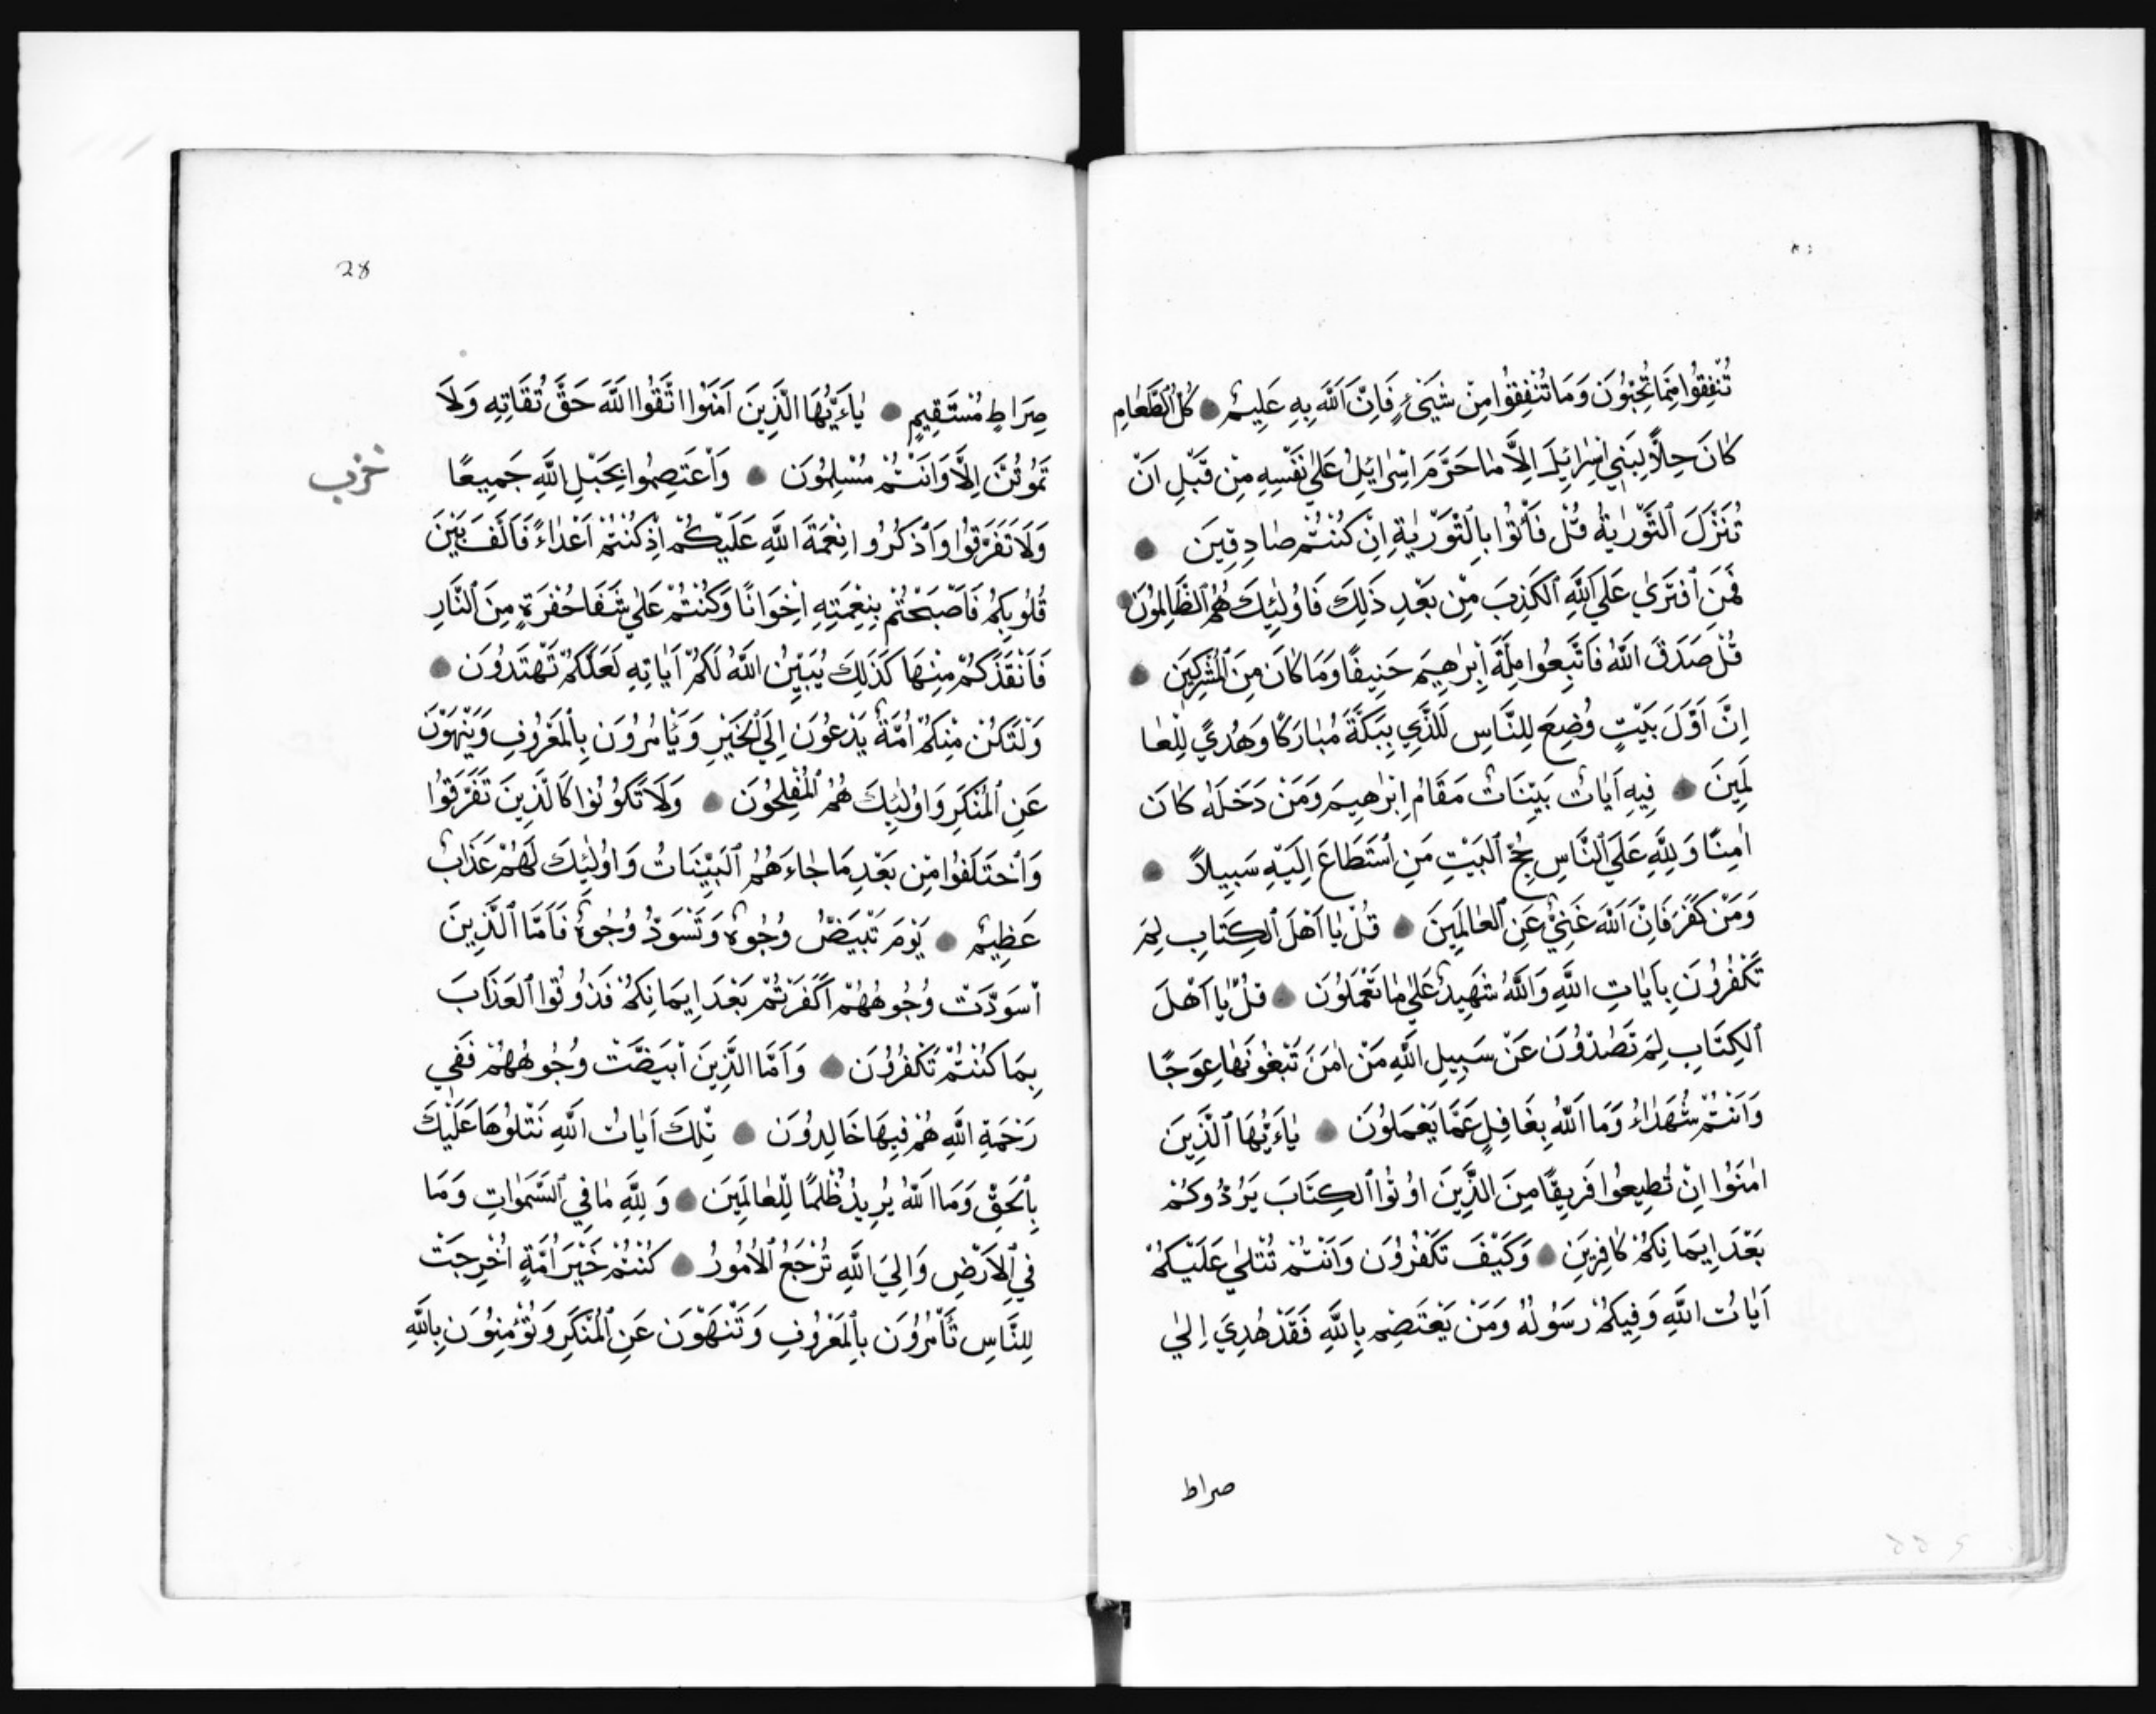 تُنْفِقُوا مِمَّا تُحِبُّونَ وَمَا تُنْفِقُوا مِنْ شَيْءٍ فَاِنَّ اللّٰهَ بِهِ عَلِيمٌ ● كُلُّ الطَّعَامِ
كَانَ حِلًّا لِبَنِي اِسْرَائِيلَ اِلَّا مَا حَرَّمَ اِسْرَائِيلُ عَلٰي نَفْسِهِ مِنْ قَبْلِ اَنْ
تُنَزَّلَ التَّوْرٰيةُ قُلْ فَأْتُوا بِالتَّوْرٰيةِ اِنْ كُنْتُمْ صَادِقِينَ ●
فَمَنِ افْتَرٰي عَلَي اللّٰهِ الْكَذِبَ مِنْ بَعْدِ ذٰلِكَ فَاُولٰئِكَ هُمُ الظَّالِمُونَ ●
قُلْ صَدَقَ اللّٰهُ فَاتَّبِعُوا مِلَّةَ اِبْرٰهِيمَ حَنِيفًا وَمَا كَانَ مِنَ الْمُشْرِكِينَ ●
اِنَّ اَوَّلَ بَيْتٍ وُضِعَ لِلنَّاسِ لَلَّذِي بِبَكَّةَ مُبَارَكًا وَهُدًي لِلْعَا
لَمِينَ ● فِيهِ اٰيَاتٌ بَيِّنَاتٌ مَقَامُ اِبْرٰهِيمَ وَمَنْ دَخَلَهُ كَانَ
اٰمِنًا وَلِلّٰهِ عَلَي النَّاسِ حِجُّ الْبَيْتِ مَنِ اسْتَطَاعَ اِلَيْهِ سَبِيلًا ●
وَمَنْ كَفَرَ فَاِنَّ اللّٰهَ غَنِيٌّ عَنِ الْعَالَمِينَ ● قُلْ يَا اَهْلَ الْكِتَابِ لِمَ
تَكْفُرُونَ بِاٰيَاتِ اللّٰهِ وَاللّٰهُ شَهِيدٌ عَلٰي مَا تَعْمَلُونَ ● قُلْ يَا اَهْلَ
الْكِتَابِ لِمَ تَصُدُّونَ عَنْ سَبِيلِ اللّٰهِ مَنْ اٰمَنَ تَبْغُونَهَا عِوَجًا
وَاَنْتُمْ شُهَدَاءُ وَمَا اللّٰهُ بِغَافِلٍ عَمَّا يَعْمَلُونَ ● يَاءَيُّهَا الَّذِينَ
اٰمَنُوا اِنْ تُطِيعُوا فَرِيقًا مِنَ الَّذِينَ اُوتُوا الْكِتَابَ يَرُدُّوكُمْ
بَعْدَ اِيمَانِكُمْ كَافِرِينَ ● وَكَيْفَ تَكْفُرُونَ وَاَنْتُمْ تُتْلٰي عَلَيْكُمْ
اٰيَاتُ اللّٰهِ وَفِيكُمْ رَسُولُهُ وَمَنْ يَعْتَصِمْ بِاللّٰهِ فَقَدْ هُدِيَ اِلٰي
صراط
28
صِرَاطٍ مُسْتَقِيمٍ ● يَاءَيُّهَا الَّذِينَ اٰمَنُوا اتَّقُوا اللّٰهَ حَقَّ تُقَاتِهِ وَلَا
تَمُوتُنَّ اِلَّا وَاَنْتُمْ مُسْلِمُونَ ● وَاعْتَصِمُوا بِحَبْلِ اللّٰهِ جَمِيعًا
حزب
وَلَا تَفَرَّقُوا وَاذْكُرُوا نِعْمَةَ اللّٰهِ عَلَيْكُمْ اِذْ كُنْتُمْ اَعْدَاءً فَاَلَّفَ بَيْنَ
قُلُوبِكُمْ فَاَصْبَحْتُمْ بِنِعْمَتِهِ اِخْوَانًا وَكُنْتُمْ عَلٰي شَفَا حُفْرَةٍ مِنَ النَّارِ
فَاَنْقَذَكُمْ مِنْهَا كَذٰلِكَ يُبَيِّنُ اللّٰهُ لَكُمْ اٰيَاتِهِ لَعَلَّكُمْ تَهْتَدُونَ ●
وَلْتَكُنْ مِنْكُمْ اُمَّةٌ يَدْعُونَ اِلَي الْخَيْرِ وَيَأْمُرُونَ بِالْمَعْرُوفِ وَيَنْهَوْنَ
عَنِ الْمُنْكَرِ وَاُولٰئِكَ هُمُ الْمُفْلِحُونَ ● وَلَا تَكُونُوا كَالَّذِينَ تَفَرَّقُوا
وَاخْتَلَفُوا مِنْ بَعْدِ مَا جَاءَهُمُ الْبَيِّنَاتُ وَاُولٰئِكَ لَهُمْ عَذَابٌ
عَظِيمٌ ● يَوْمَ تَبْيَضُّ وُجُوهٌ وَتَسْوَدُّ وُجُوهٌ فَاَمَّا الَّذِينَ
اسْوَدَّتْ وُجُوهُهُمْ اَكَفَرْتُمْ بَعْدَ اِيمَانِكُمْ فَذُوقُوا الْعَذَابَ
بِمَا كُنْتُمْ تَكْفُرُونَ ● وَاَمَّا الَّذِينَ ابْيَضَّتْ وُجُوهُهُمْ فَفِي
رَحْمَةِ اللّٰهِ هُمْ فِيهَا خَالِدُونَ ● تِلْكَ اٰيَاتُ اللّٰهِ نَتْلُوهَا عَلَيْكَ
بِالْحَقِّ وَمَا اللّٰهُ يُرِيدُ ظُلْمًا لِلْعَالَمِينَ ● وَلِلّٰهِ مَا فِي السَّمٰوَاتِ وَمَا
فِي الْاَرْضِ وَاِلَي اللّٰهِ تُرْجَعُ الْاُمُورُ ● كُنْتُمْ خَيْرَ اُمَّةٍ اُخْرِجَتْ
لِلنَّاسِ تَأْمُرُونَ بِالْمَعْرُوفِ وَتَنْهَوْنَ عَنِ الْمُنْكَرِ وَتُؤْمِنُونَ بِاللّٰهِ